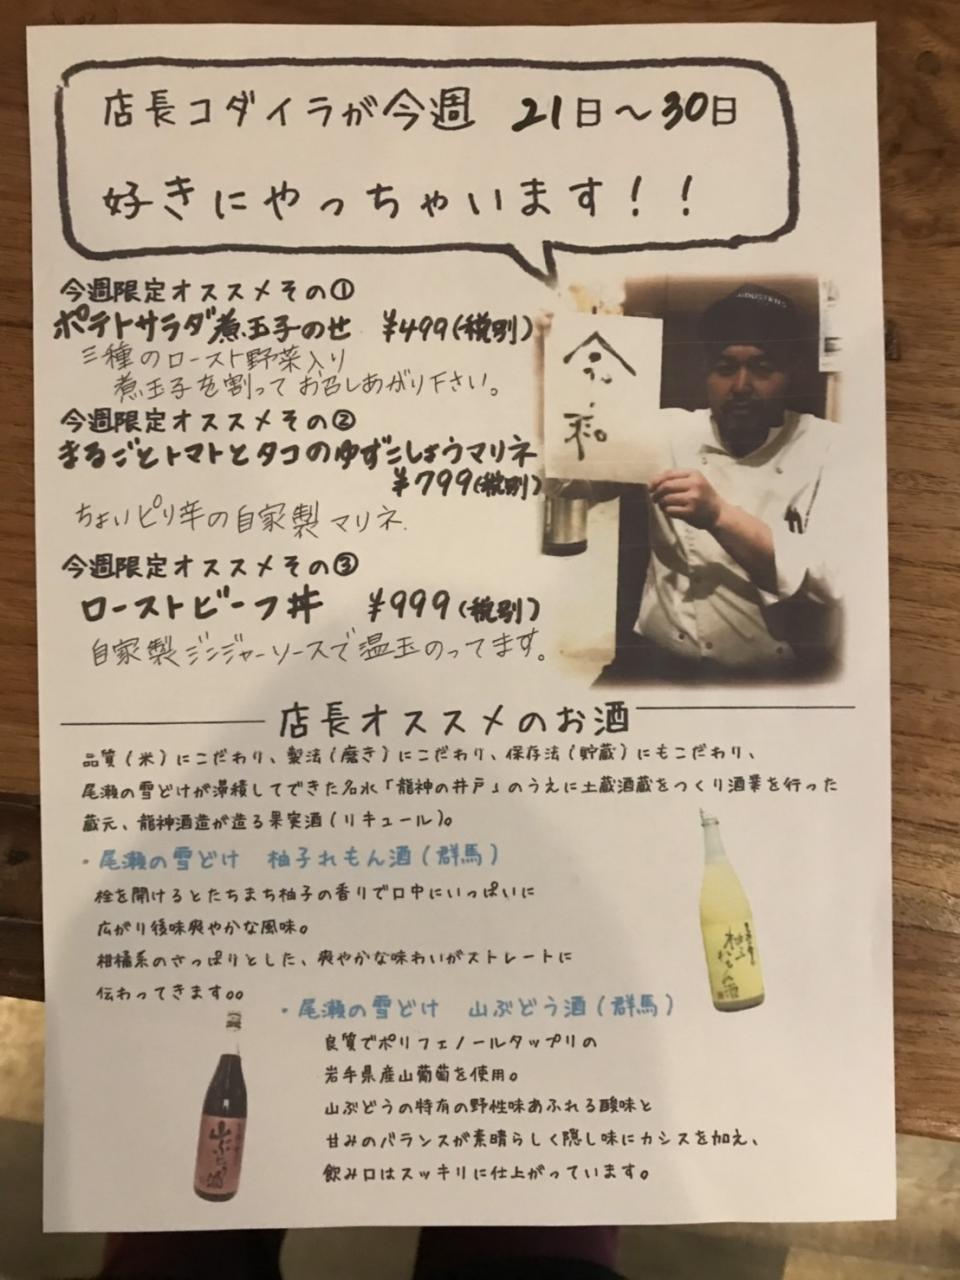 店長コダイラが今週　21日～30日
好きにやっちゃいます！！
今週限定オススメその①
ポテトサラダ煮玉子のせ　¥499(税別)
三種のロースト野菜入り
煮玉子を割ってお召しあがり下さい。
今週限定オススメその②
まるごとトマトとタコのゆずこしょうマリネ
¥799(税別)
ちょいピリ辛の自家製マリネ
今週限定オススメその③
ローストビーフ丼　¥999(税別)
自家製ジンジャーソースで温玉のってます。
店長オススメのお酒
品質(米)にこだわり、製法(磨き)にこだわり、保存法(貯蔵)にもこだわり、
尾瀬の雪どけが滞積してできた名水「龍神の井戸」のうえに土蔵酒蔵をつくり酒業を行った
蔵元、龍神酒造が造る果実酒(リキュール)。
・尾瀬の雪どけ　柚子れもん酒(群馬)
栓を開けるとたちまち柚子の香りで口中にいっぱいに
広がり後味爽やかな風味。
柑橘系のさっぱりとした、爽やかな味わいがストレートに
伝わってきます。。
・尾瀬の雪どけ　山ぶどう酒(群馬)
良質でポリフェノールタップリの
岩手県産山葡萄を使用。
山ぶどうの特有の野性味あふれる酸味と
甘みのバランスが素晴らしく隠し味にカシスを加え、
飲み口はスッキリに仕上がっています。
柚子れもん酒
山ぶどう酒